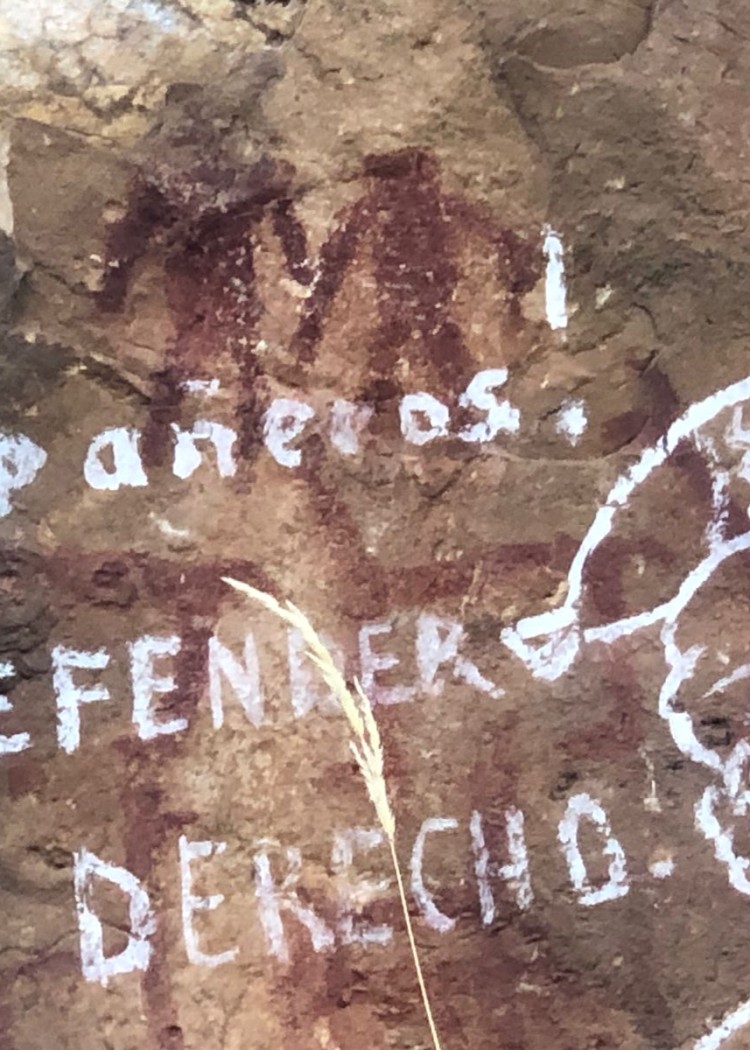 pañeros.
EFENDER
DERECHO.